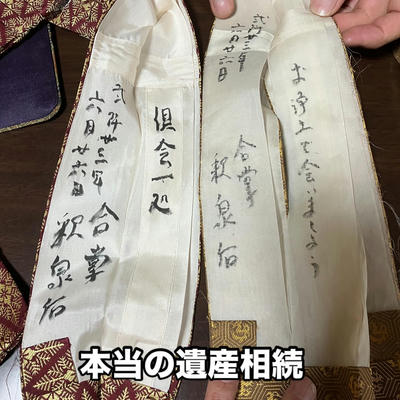 お浄土で会いましょう
弐阡廿三年
六月廿六日
合掌
釈泉
倶会一処
弐阡廿三年
六月廿六日
合掌
釈泉
本当の遺産相続